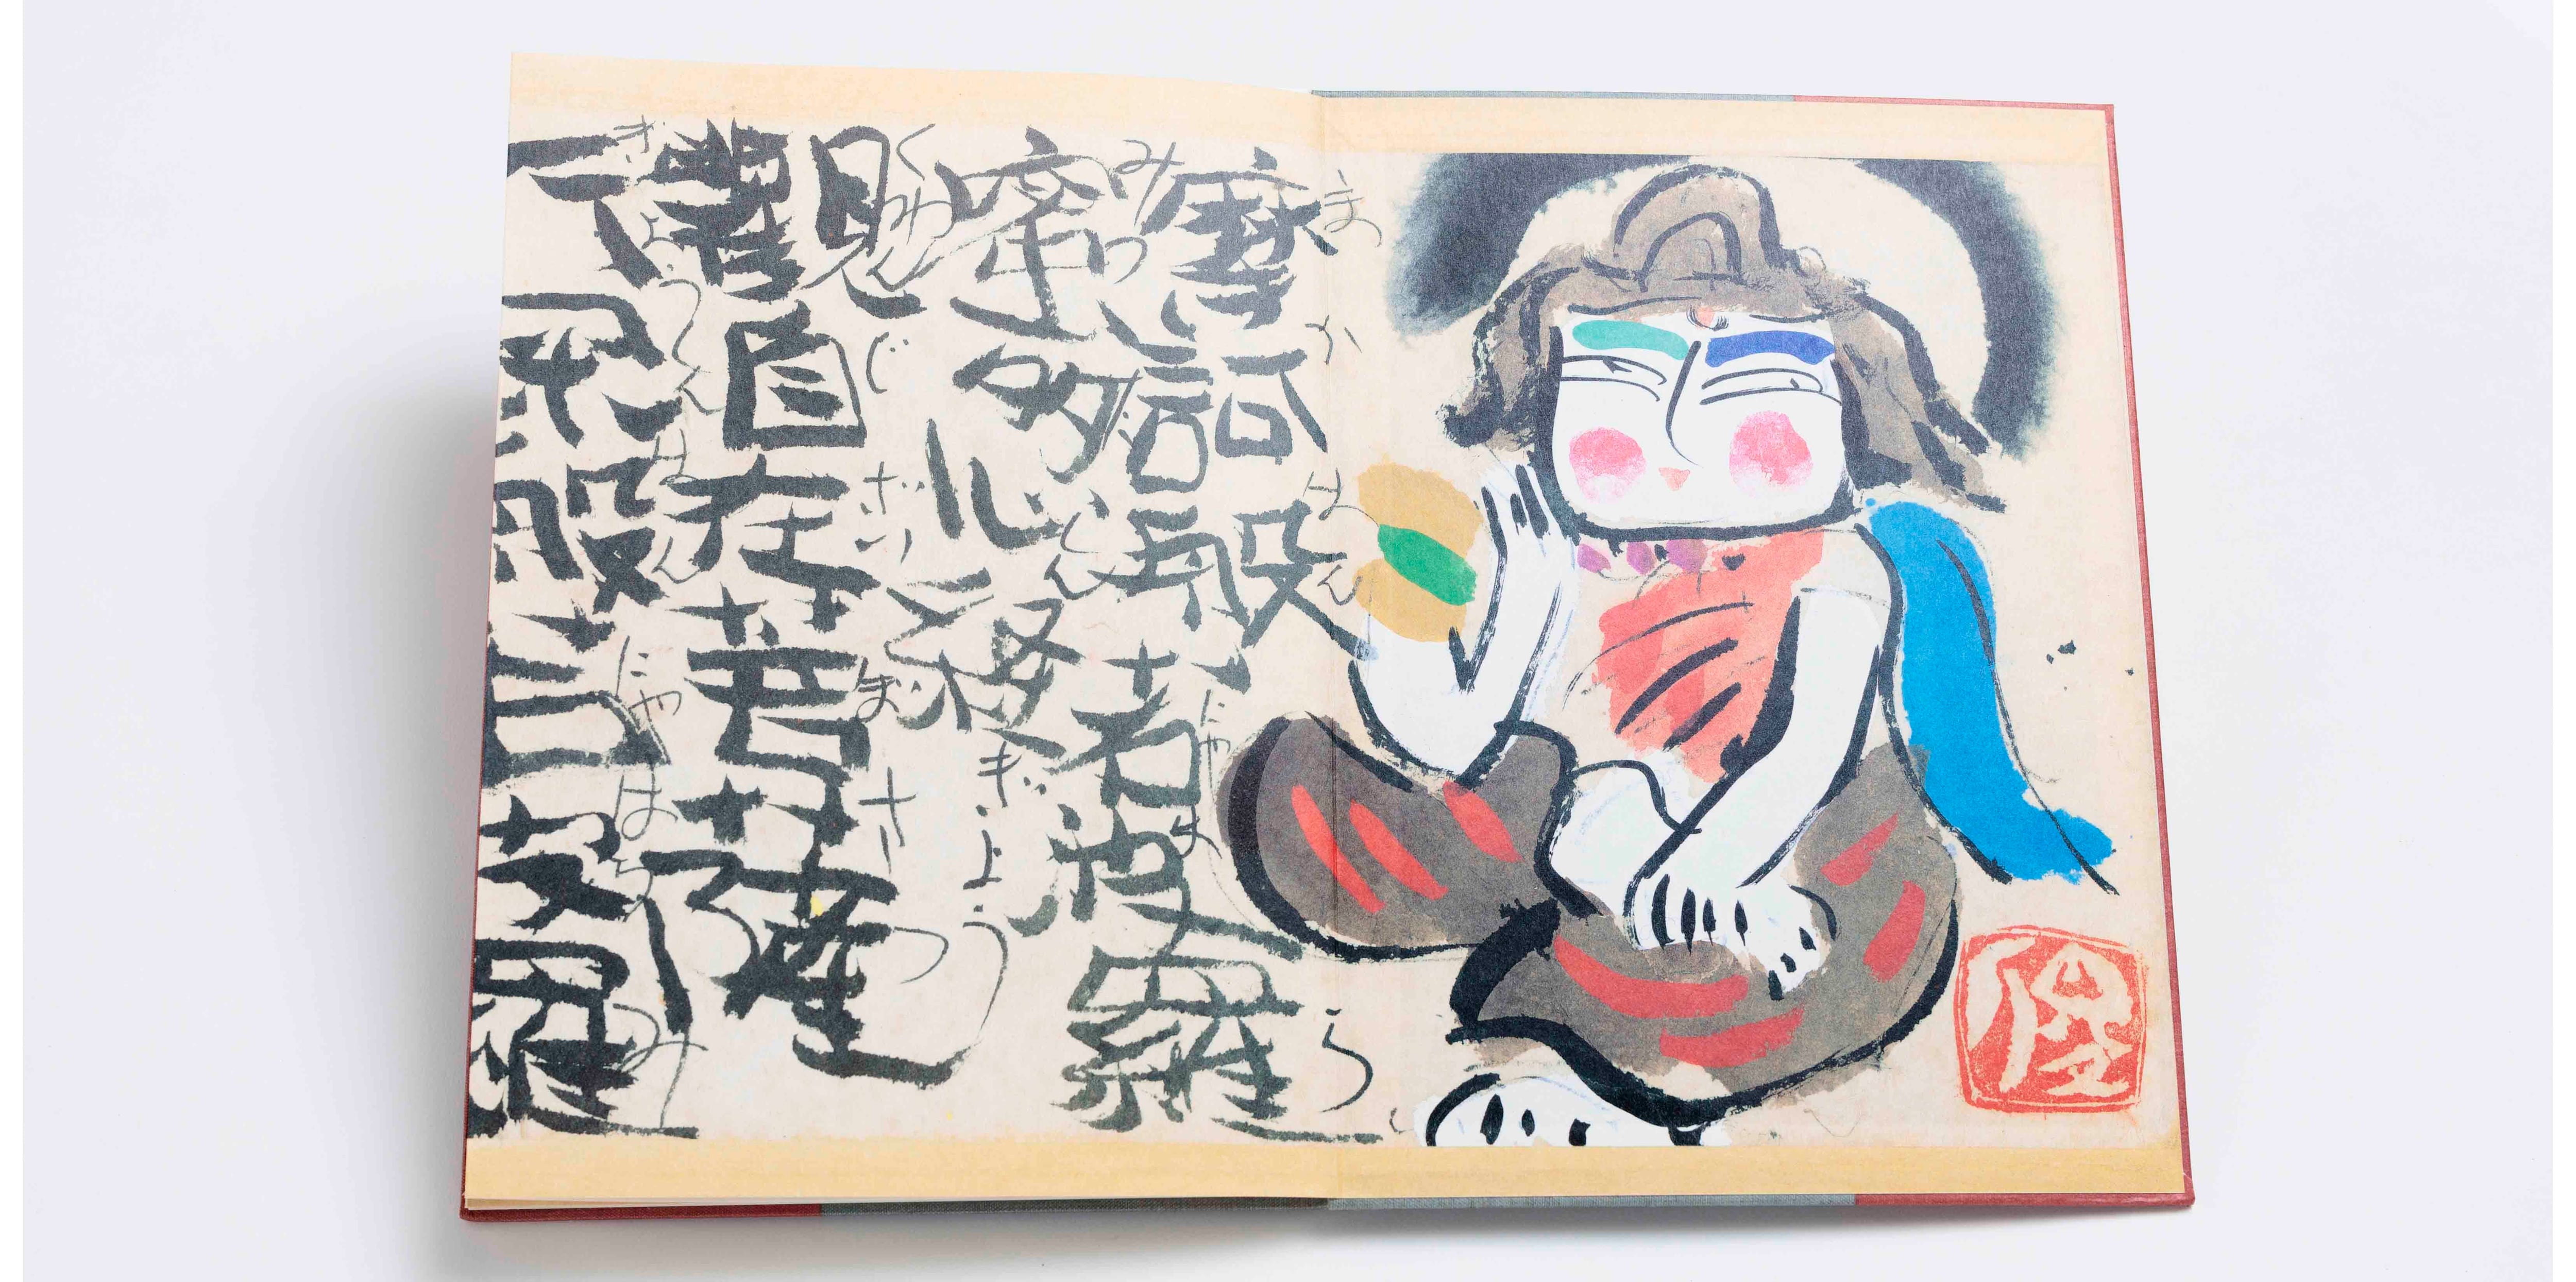 摩訶般若波羅
まかはんにやはら
蜜多心経
みつしんぎよう
觀自在菩薩
くわんじざいぼさつ
行深般若波羅
ぎようしんはんにやはらみ